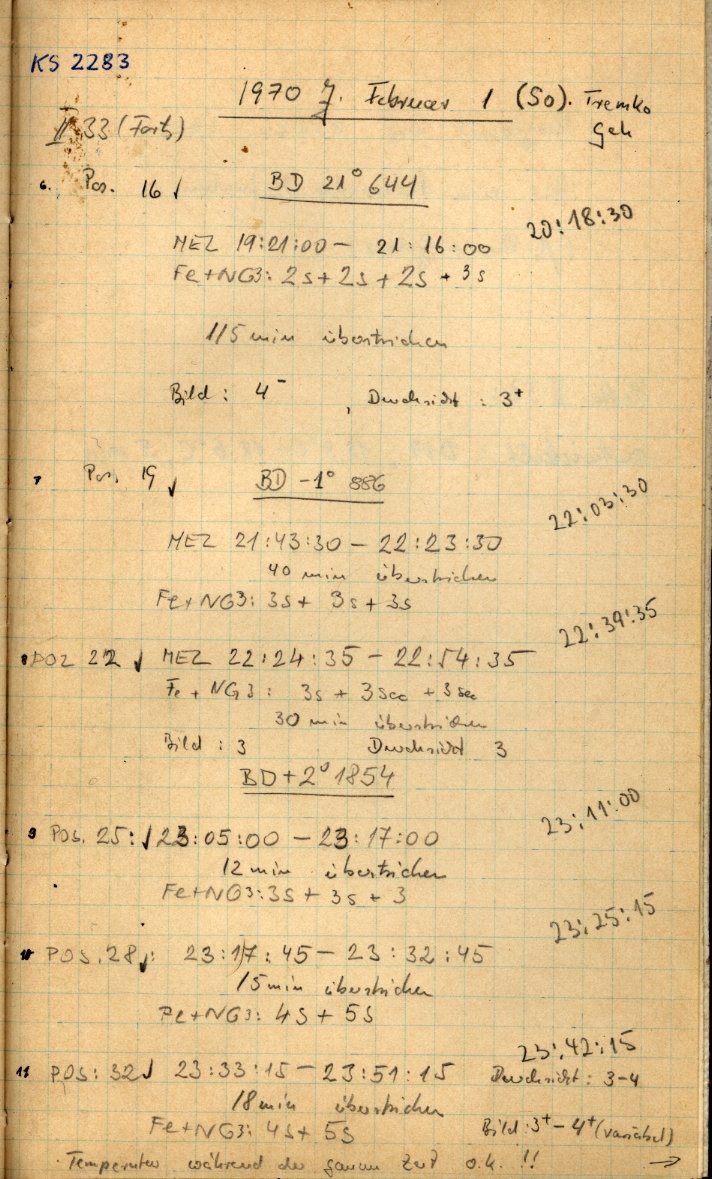 KS 2283
1970 J. Februar 1 (So). Tremko
II 33 (Forts) Geh
6. Pos. 16 √ BD 21° 644
20:18:30
MEZ 19:21:00 – 21:16:00
Fe+NG3: 2s + 2s + 2s + 3s
115 min überstrichen
Bild: 4⁻, Durchsicht: 3⁺
7 Pos. 19 √ BD -1° 886
22:03:30
MEZ 21:43:30 – 22:23:30
40 min überstrichen
Fe+NG3: 3s + 3s + 3s
22:39:35
8 POZ 22 √ MEZ 22:24:35 – 22:54:35
Fe + NG3: 3s + 3sec + 3sec
30 min überstrichen
Bild: 3 Durchsicht 3
BD+2° 1854
23:11:00
9 POS. 25: √ 23:05:00 – 23:17:00
12 min überstrichen
Fe+NG3: 3s + 3s + 3
23:25:15
10 POS. 28 √: 23:17:45 – 23:32:45
15 min überstrichen
Fe+NG3: 4s + 5s
23:42:15
11 POS: 32 √ 23:33:15 – 23:51:15 Durchsicht: 3-4
18 min überstrichen
Fe+NG3: 4s + 5s Bild: 3⁺ – 4⁺ (variabel)
Temperatur während der ganzen Zeit o.k. !! →